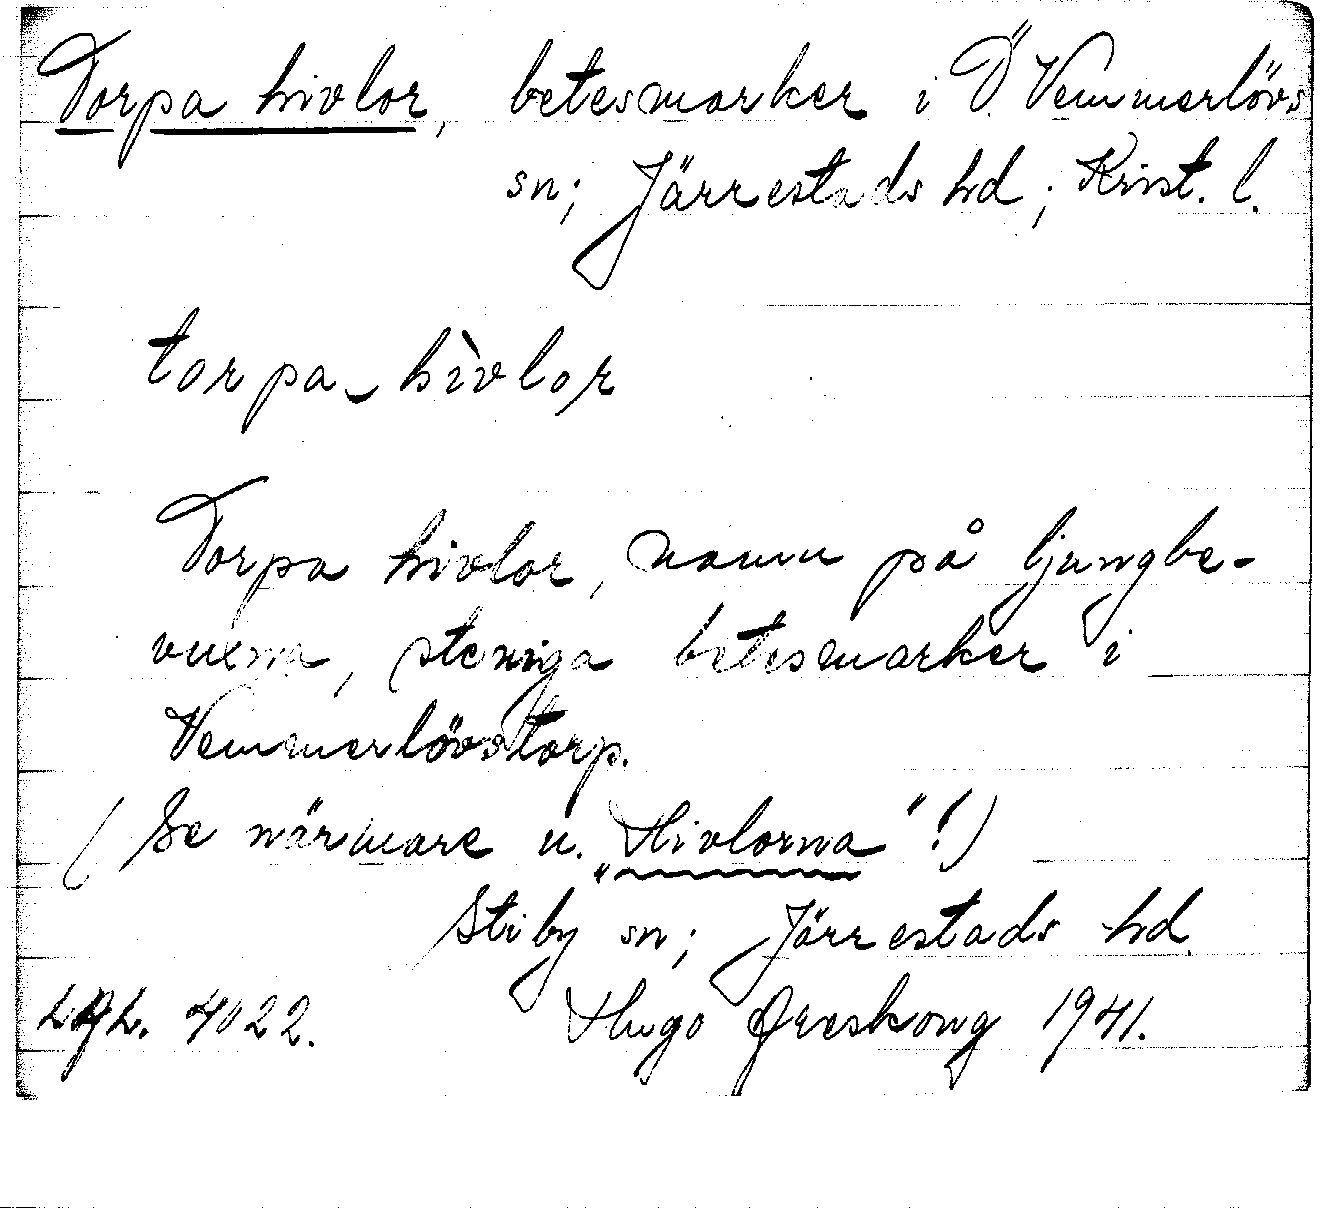 Torpa hivlor, betesmarker i Ö. Vemmerlövs
sn; Järrestads hd; Krist. l.
torpa hìvlor
Torpa hivlor, namn på ljungbe-
vuxna, steniga betesmarker i
Vemmerlövstorp.
(Se närmare u. „Hivlorna"!)
Stiby sn; Järrestads hd.
4022. Hugo Areskoug 1941.